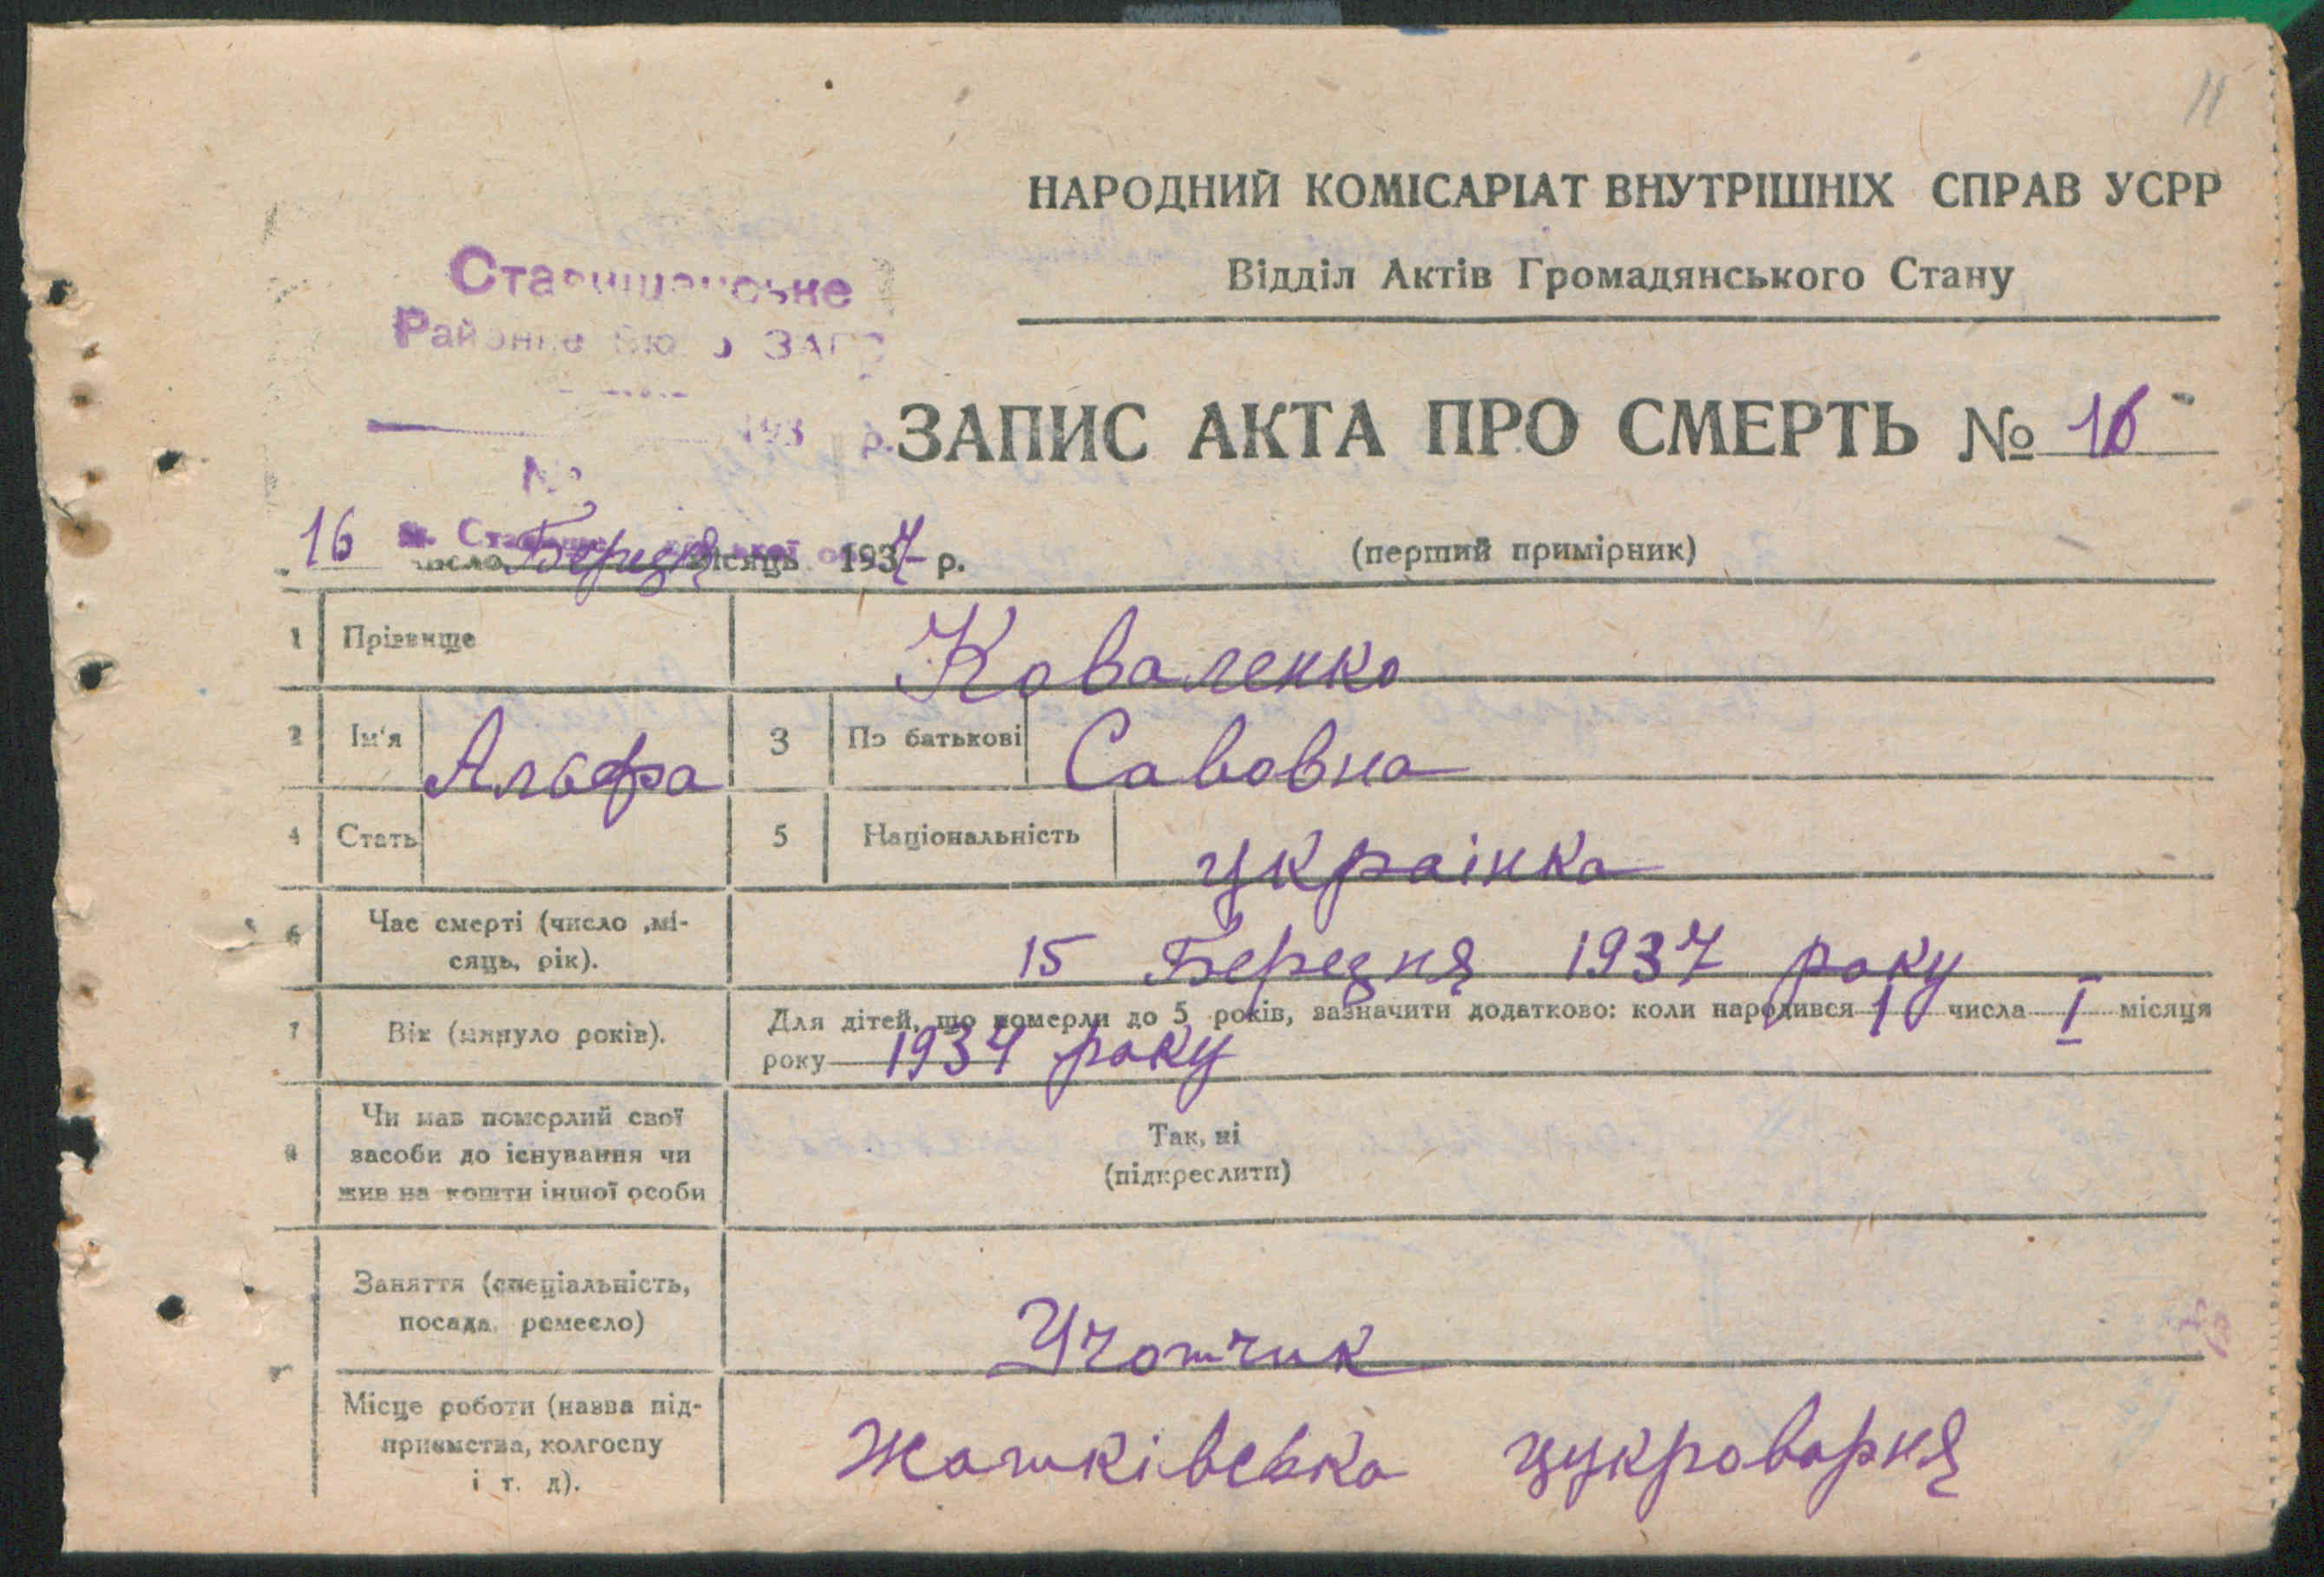 11
НАРОДНИЙ КОМІСАРІАТ ВНУТРІШНІХ СПРАВ УСРР
Відділ Актів Громадянського Стану
Районне Бюро ЗАГС
193 р.
ЗАПИС АКТА ПРО СМЕРТЬ № 16
№
16 число Березня місяць 1937 р.
(перший примірник)
1 Прізвище Коваленко
2 Ім'я Альфа 3 По батькові Савовна
4 Стать 5 Національність украінка
6 Час смерті (число ,мі-
сяць, рік). 15 Березня 1937 року
7 Вік (минуло років). Для дітей, що померли до 5 років, зазначити додатково: коли народився 1 числа I місяця
року 1934 року
8 Чи мав померлий свої
засоби до існування чи
жив на кошти іншої особи
Так, ні
(підкреслити)
Заняття (спеціальність,
посада, ремесло) Учотчик
Місце роботи (назва під-
приємства, колгоспу
і т. д). Жашківська цукроварня